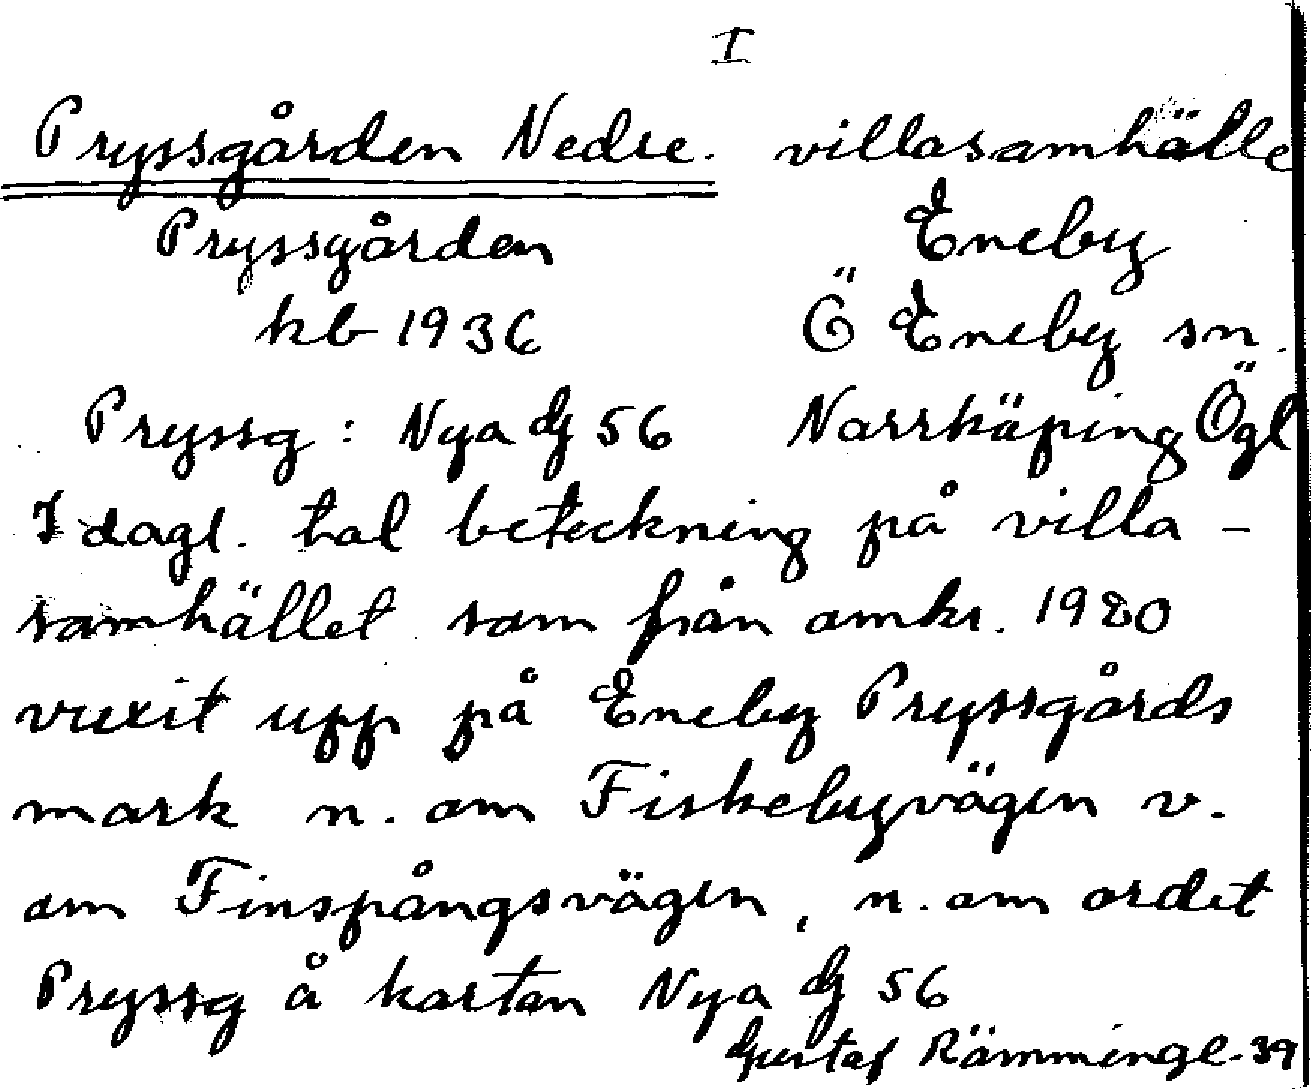 I
Pryssgården Nedre. villasamhälle
Pryssgården Eneby
kb 1936 Ö Eneby sn.
Pryssg: Nya dg 56 Norrköping Ögl
I dagl. tal beteckning på villa-
samhället som från omkr. 1920
vuxit upp på Eneby Pryssgårds
mark n. om Fiskebyvägen v.
om Finspångsvägen, n. om ordet
Pryssg å kartan Nya dg 56
Gustaf Rämminge -39